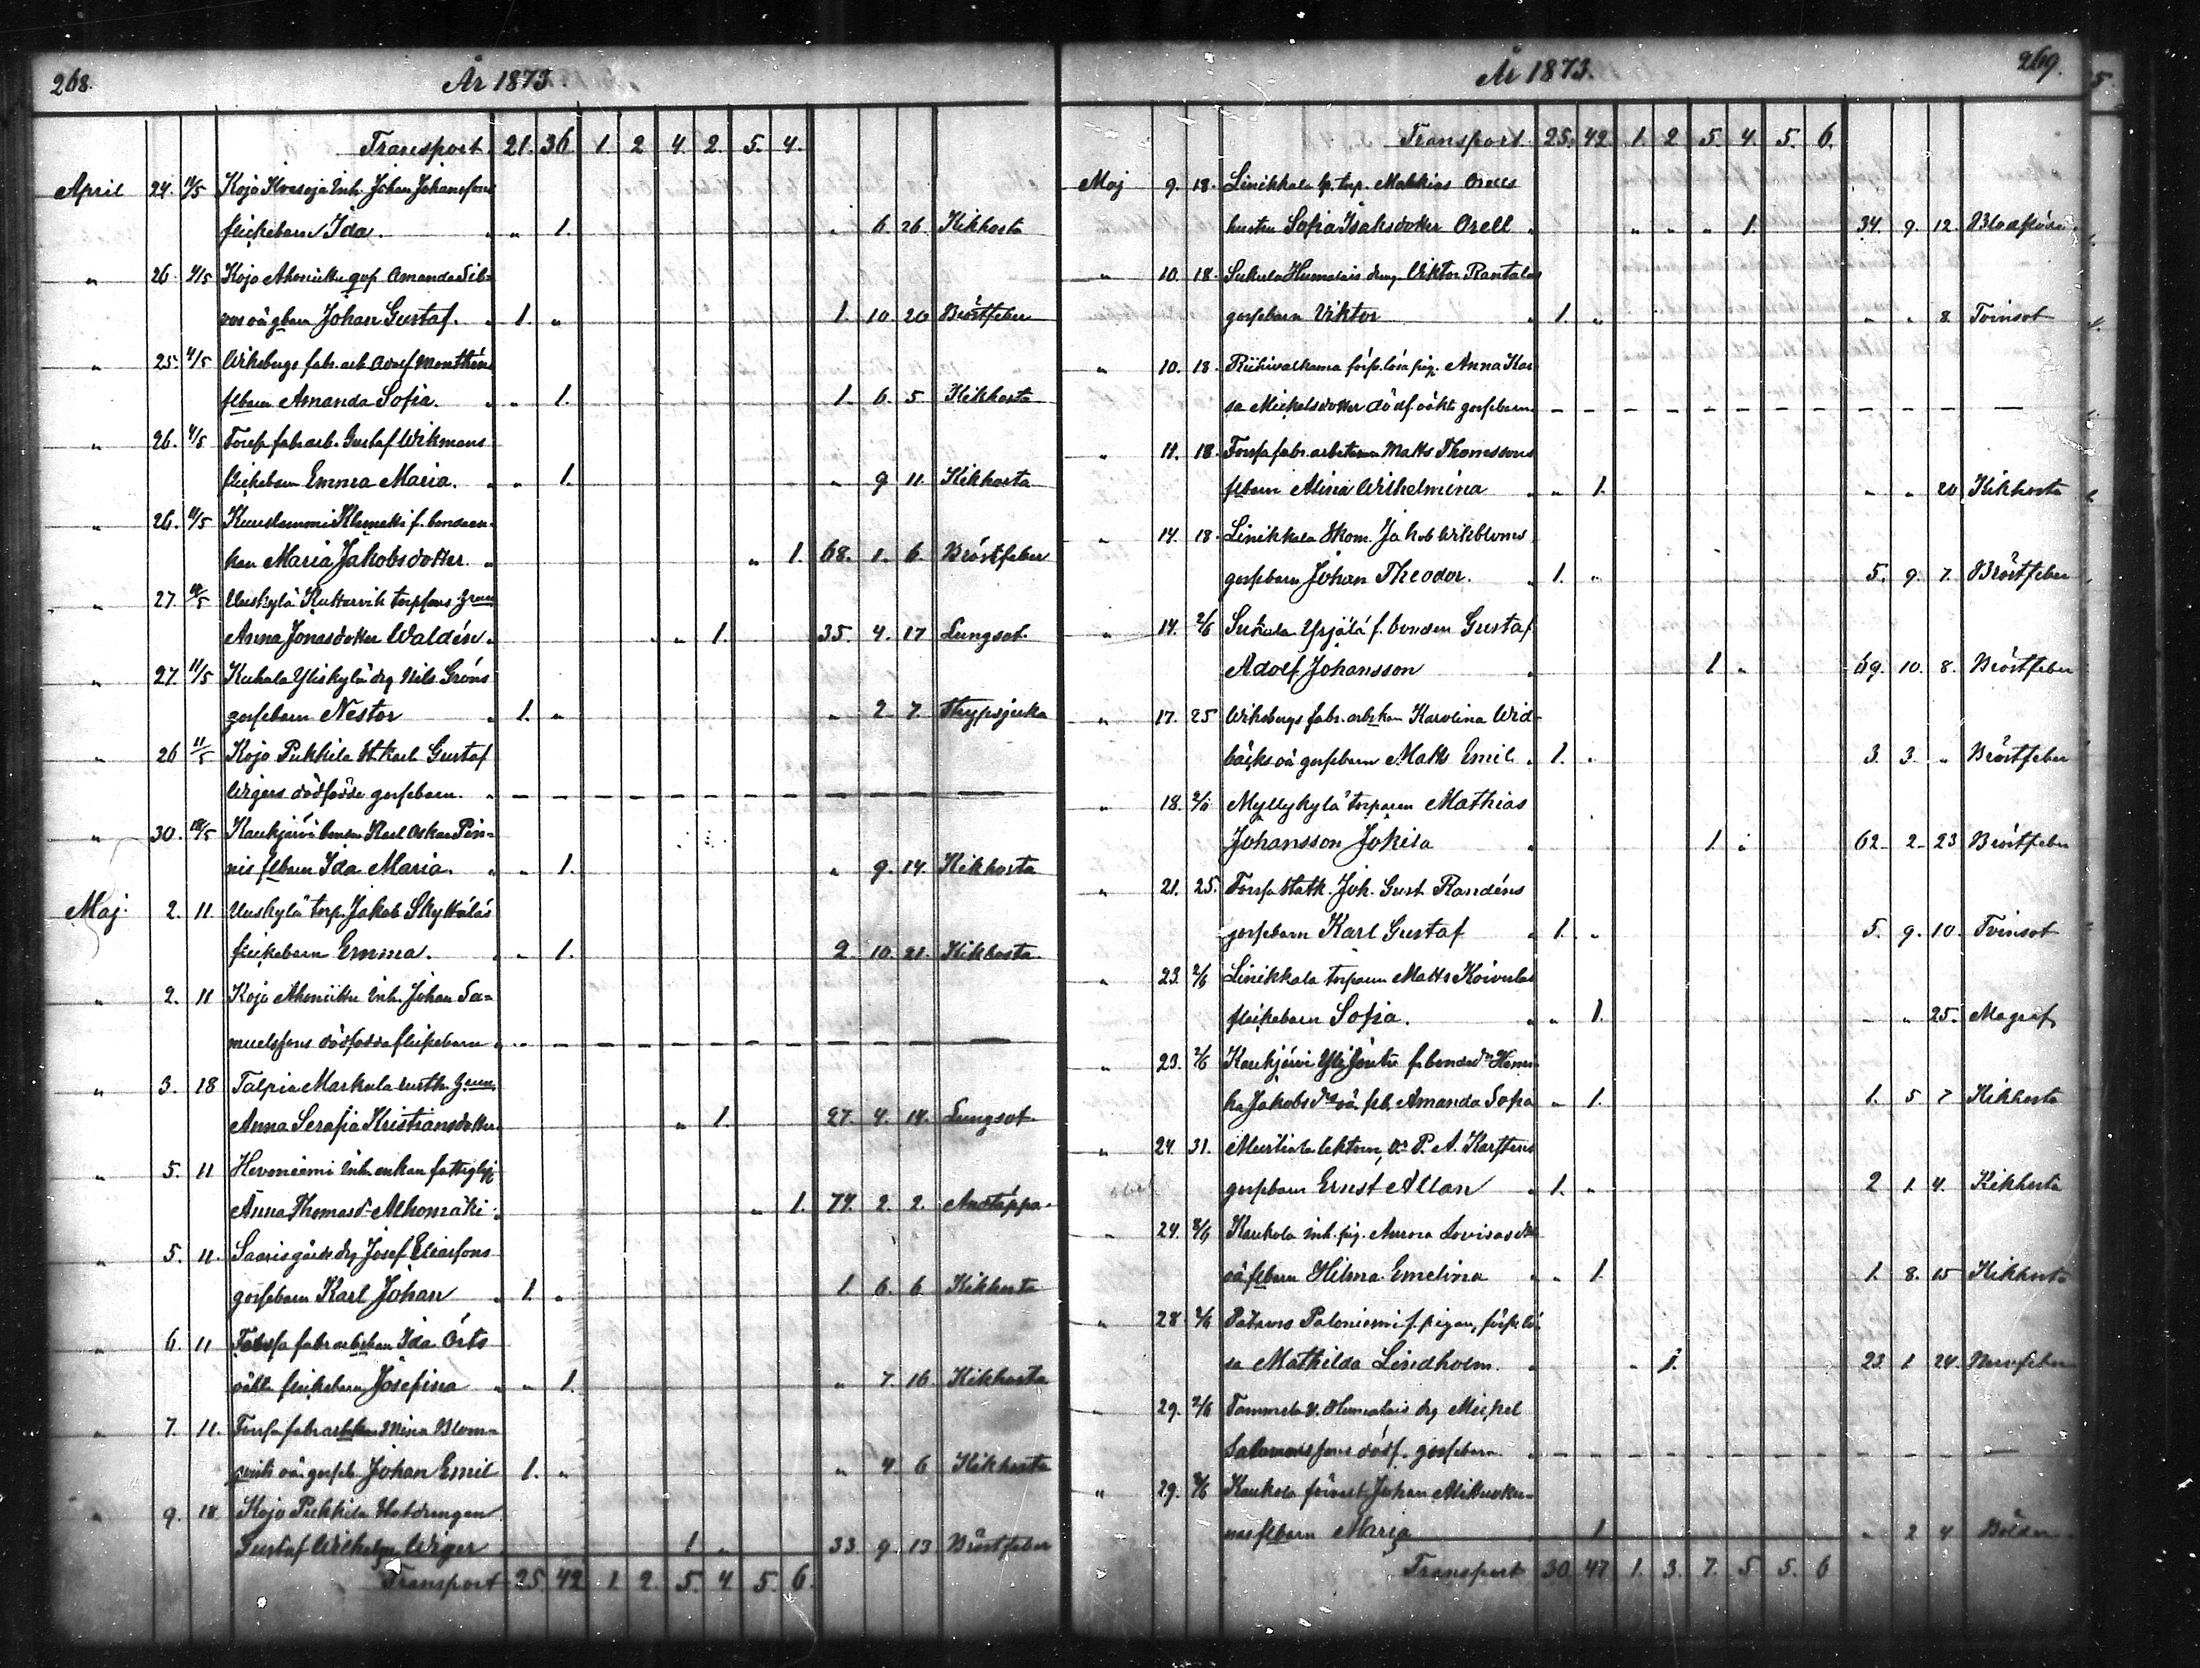 268. År 1873.
Transport. 21. 36. 1. 2 4. 2. 5. 4.
April 24. 11/5 Kojo Inh. Johan Johanssons
flickebarn Ida. " " 1. " 6 26. Kikhosta
" 26. 4/5 Kojo Ahoniittu Amanda
oä gbarn Johan Gustaf. " 1. " 1. 10 20 Bröstfeber
" 25. 4/5 Wiksbergs fabr. arb. Adolf Monthéns
flbarn Amanda Sofia. " " 1. 1. 6. 5 Kikhosta
" 26. 4/5 Forssa fabr. arb. Gustaf Wikmans
flickebarn Emma Maria. " " 1. " 9 11. Kikhosta
" 26. 11/5 Kuuslammi Klemetti f. bondeen-
kan Maria Jakobsdotter. " " 1. 68. 1. 6. Bröstfeber
" 27. Uuskylä torpare
Anna Jonasdotter Waldén. " " 1. 35. 4. 17 Lungsot.
" 27. 11/5 Kuhala Yliskylä drg Nils Gröns
gossebarn Nestor " 1. " " 2. 7. Strypsjuka
" 26 11/5 Kojo Pirkkila St.karl Gustaf
Wigers dödfödde gossebarn. "
" 30. 18/5 Kaukjärvi bonden Karl Oskar Pin-
nis flbarn Ida Maria. " " 1. " 9. 14. Kikhosta
Maj. 2. 11 Uuskylä torp. Jakob Skyttäläs
flickebarn Emma. " " 1. 2. 10. 21. Kikhosta.
" 2. 11 Kojo Ahoniittu Inh. Johan Sa-
muelssons dödfödda flickebarn "
" 3. 18 Talpia Markula
Anna Serafia Kristiansdotter " 1. 27. 4. 14. Lungsot
" 5. 11 Hevoniemi Inh. enkan fattighj.
Anna Thomasdr Alhomäki. " 1. 74. 2. 2. Andtäppa.
" 5. 11. Saarisgårds drg Josef Eliassons
gossebarn Karl Johan " 1. " 1 6. 6 Kikhosta
" 6. 11 Forssa fabr arbskan Ida Örts
oäkta flickebarn Josefina " " 1. " 7. 16 Kikhosta
" 7. 11. Forssa fabr arbskan Mina Blom-
qvists oä. gosseb. Johan Emil 1. " " 4 6 Kikhosta
" 9. 18 Kojo Pirkkila Statdrengen
Gustaf Wilhelm Wiger 1 " 33. 9. 13 Bröstfeber
Transport 25. 42 1. 2. 5. 4. 5. 6.
År 1873. 269.
Transport. 25. 42. 1. 2 5. 4. 5. 6.
Maj 9. 18. Linikkala torp. Mathias Orells
hustru Sofia Isaksdotter Orell " " " " 1. 34. 9. 12.
" 10. 18. Sukula Humalais dreng Viktor Rantalas
gossebarn Viktor " 1. " " " 8. Tvinsot
" 10. 18. Riihivalkama pig. Anna Kai-
sa Mickelsdotter dödf. oäkta gossebarn
" 14. 18. Forssa fabr. arbetaren Matts Thomssons
flbarn Alina Wilhelmina " " 1. " " 20 Kikhosta
" 14. 18. Linikkala Skom. Jakob Wikbloms
gossebarn Johan Theodor. " 1. " 5. 9. 7. Bröstfeber
" 14. 2/6 Sukula Yrjälä f. bonden Gustaf
Adolf Johansson " 1. " 69. 10. 8. Bröstfeber
" 17. 25 Wiksbergs fabr. arbskan Karolina Wid-
bäcks oä gossebarn Matts Emil " 1. " 3. 3. " Bröstfeber
" 18. 2/6 Myllykylä torparen Mathias
Johansson Jokela " 1. " 62. 2. 23 Bröstfeber
" 21. 25. Forssa Joh. Gust. Randéns
gossebarn Karl Gustaf " 1. " 5. 9. 10. Tvinsot
" 23. 2/6 Linikkala torparen Matts Koivulas
flickebarn Sofia. " " 1. " " 25. Magref
" 23. 2/6 Kaukjärvi f. bonded.
Jakobsd. oä flb. Amanda Sofia " 1. 1. 5 7 Kikhosta
" 24. 31. Mustiala lektorn, Dr P. A. Karstens
gossebarn Ernst Allan " 1. " 2 1. 4. Kikhosta
24. Kaukola inh. pig. Aurora Lovisas
oä flbarn Hilma Emelina " " 1. 1. 8. 15 Kikhosta
" 28 2/6 Patamo Paloniemi f. pigan,
sa Mathilda Lindholm. " " 1. 23. 1 24. Nervfeber
" 29. 2/6 Tammela drg Mickel
Salomonssons dödf. gossebarn. "
" 29. 2/6 Kaukola Johan
flbarn Maria 1. " 2 4
Transport 30. 47 1. 3. 7. 5 5. 6